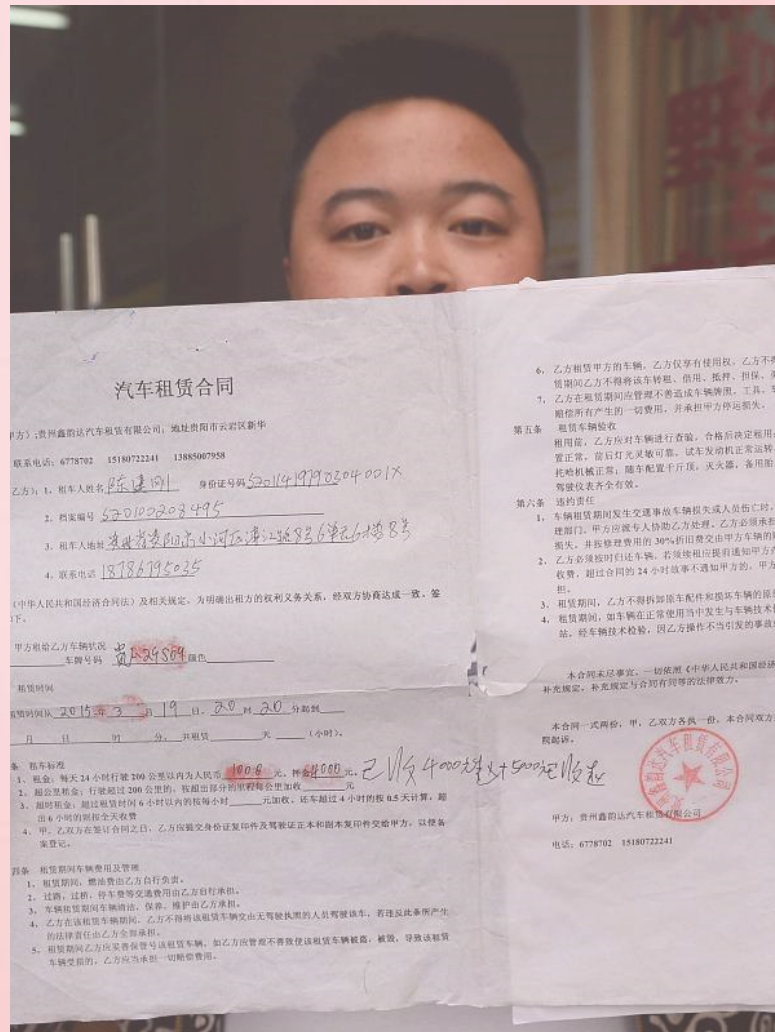 汽车租赁合同
甲方):贵州鑫韵达汽车租赁有限公司;地址贵阳市云岩区新华
联系电话:6778702 15180722241 13885007958
乙方):1、租车人姓名 陈建刚 身份证号码
2、档案编号 520100208495
3、租车人地址 8号6单元6楼8号
4、联系电话 18786795035
《中华人民共和国经济合同法》及相关规定,为明确出租方的权利义务关系,经双方协商达成一致,签
下。
甲方租给乙方车辆状况
车牌号码 颜色
租赁时间
租赁时间从 2015 年 3 月 19 日,20 时 20 分起到
月 日 时 分,共租赁 天 (小时)。
条 租车标准
1、租金:每天24小时行驶200公里以内为人民币 元,押金4000元。已收4000元
2、超公里租金:行驶超过200公里的,按超出部分的里程每公里加收 元
3、超时租金:超过租赁时间6小时以内的按每小时 元加收。还车超过4小时的按0.5天计算,超
出6小时的则按全天收费
4、甲、乙双方在签订合同之日,乙方应提交身份证复印件及驾驶证正本和副本复印件交给甲方,以便备
案登记。
四条 租赁期间车辆费用及管理
1、租赁期间,燃油费由乙方自行负责。
2、过路,过桥,停车费等交通费用由乙方自行承担。
3、车辆租赁期间车辆清洁、保养、维护由乙方承担。
4、乙方在该租赁车辆期间,乙方不得将该租赁车辆交由无驾驶执照的人员驾驶该车,若违反此条所产生
的法律责任由乙方全部承担。
5、租赁期间乙方应妥善保管号该租赁车辆,如乙方应管理不得致使该租赁车辆被盗,被毁,导致该租赁
车辆受损的,乙方应当承担一切赔偿费用。
6、乙方租赁甲方的车辆,乙方仅享有使用权,乙方不得
赁期间乙方不得将该车转租、借用、抵押、担保、
7、乙方在租赁期间应管理不善造成车辆牌照、工具、
赔偿所有产生的一切费用,并承担甲方停运损失。
第五条 租赁车辆验收
租用前,乙方应对车辆进行查验,合格后决定租用
置正常,前后灯光灵敏可靠,试车发动机正常运转
托哈机械正常;随车配置千斤顶,灭火器,备用胎
驾驶仪表齐全有效。
第六条 违约责任
1、车辆租赁期间发生交通事故车辆损失或人员伤亡时,
理部门,甲方应派专人协助乙方处理,乙方必须承担
损失,并按修理费用的30%折旧费交由甲方车辆的
2、乙方必须按时归还车辆,若须续租应提前通知甲方
收费,超过合同的24小时故事不通知甲方的,甲方
担。
3、租赁期间,乙方不得拆卸原车配件和损坏车辆的原
4、租赁期间,如车辆在正常使用当中发生与车辆技术
站,经车辆技术检验,因乙方操作不当引发的事故
本合同未尽事宜,一切依照《中华人民共和国经济
补充规定,补充规定与合同有同等的法律效力。
本合同一式两份,甲、乙双方各执一份,本合同双方
院起诉。
贵州鑫韵达汽车租赁有限公司
甲方:贵州鑫韵达汽车租赁有限公司
电话:6778702 15180722241